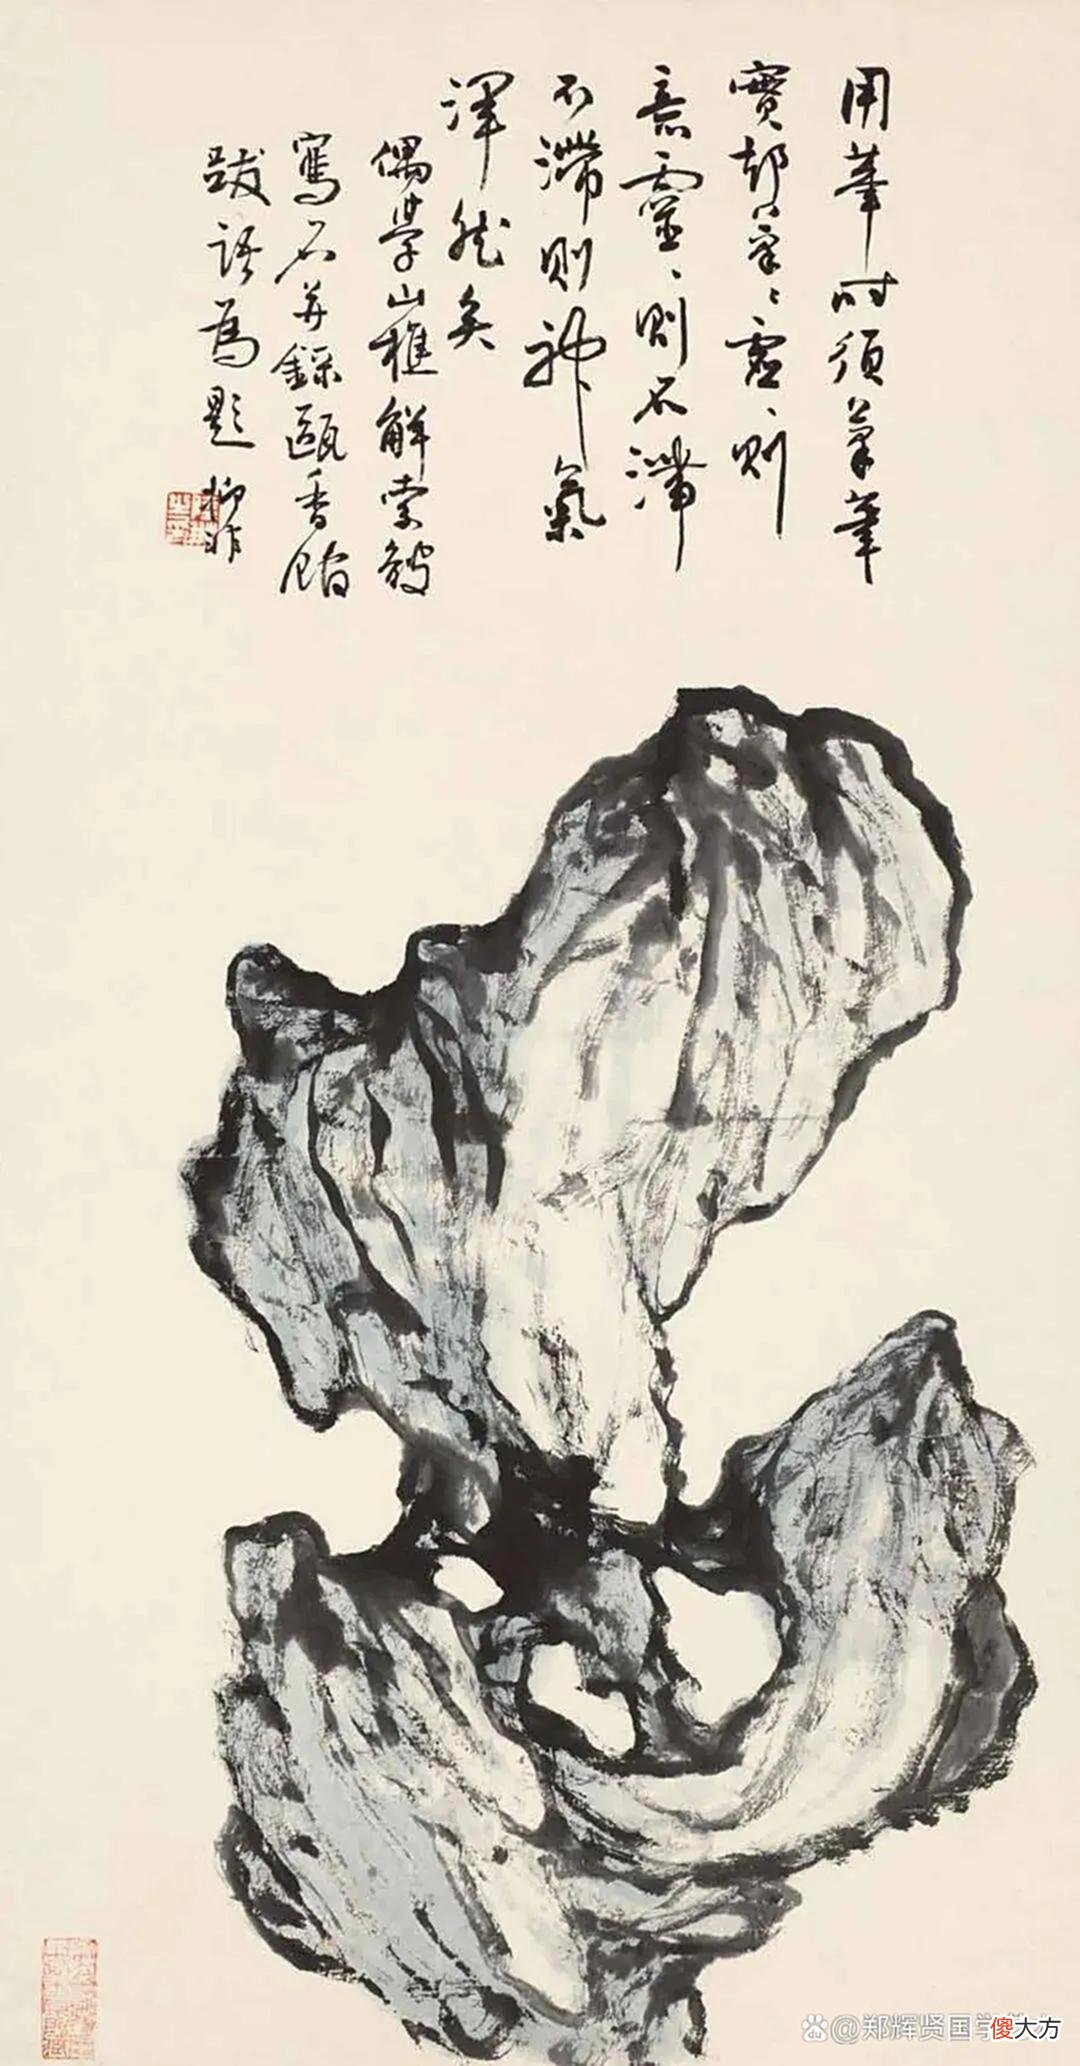 用筆時須筆筆
實却筆筆虛虛則
意靈靈則不滯
不滯則神氣
渾然矣
偶學山樵解索皴
寫石并錄甌香館
跋語爲題 柳非
@郑辉贤国学
傻大方